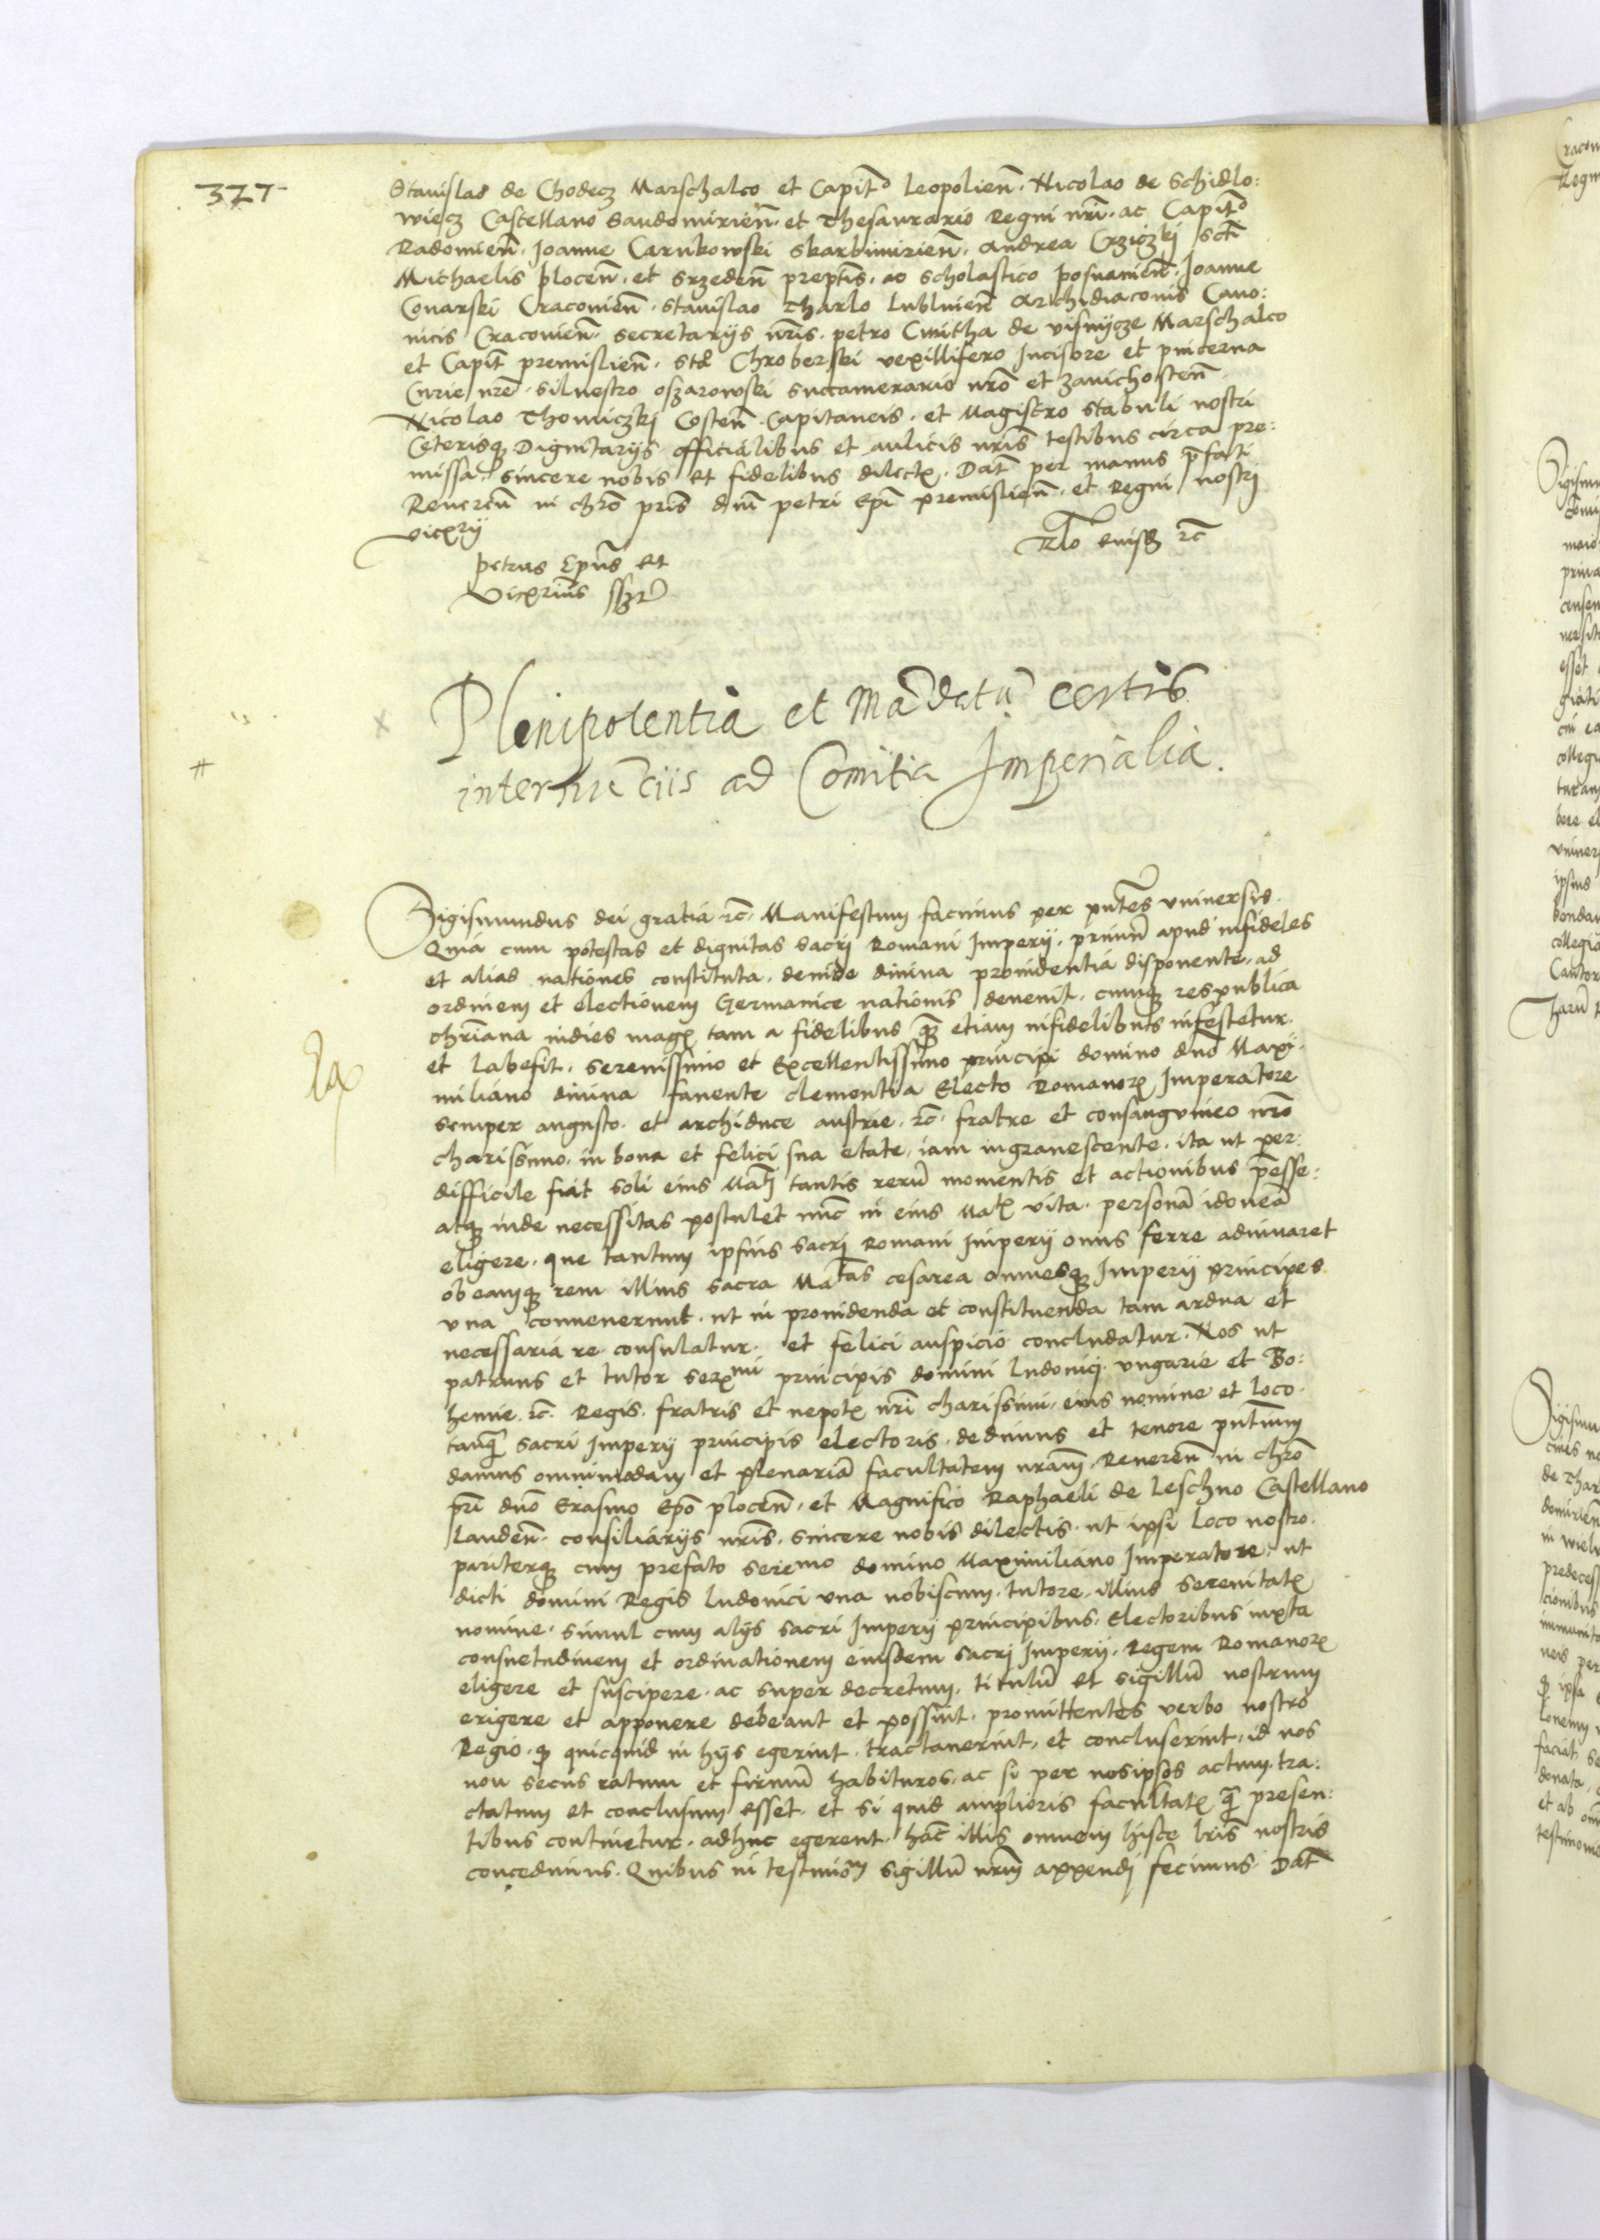 377
Stanislao de Chodecz Marschalco et Capitō Leopolien̄. Nicolao de Schidlo:
wiecz Castellano Sandomirien̄. et Thesaurario Regni nr̄i. ac Capitō
Radomien̄. Joanne Carnkowski Skarbimirien̄. Andrea Crziczkj sct̄i
Michaelis plocen̄. et Srzeden̄ prept̄is. ac scholastico posnanien̄. Joanne
Conarski Cracovien̄. Stanislao Tharlo Lublinien̄ Archidiaconis Cano:
nicis Cracovien̄. Secretarijs nr̄is. petro Cmitha de visnycze Marschalco
et Capit̄ premislien̄. Chroberski vexillifero Incisore et pincerna
Curie nr̄e. Silvestro oszarowski succamerario nr̄o et zavichosten̄
Nicolao Thomiczkj Costen̄. Capitaneis. et Magistro stabuli nostri
Ceterisq Dignitarijs officialibus et aulicis nr̄is testibus circa pre:
missa. sincere nobis et fidelibus dilectꝫ. Dat̄ per manus p̄fati
Reveren̄ in chrō pris̄ dn̄i petri Ep̄i premislien̄. et Regni nostrj
vicꝫrij
Rl̄o eiusꝫ rc̄
petrus Ep̄us et
vicꝫrius sszt
Plenipotentia et mādatū certis
internūciis ad Comitia Imperialia.
Sigismundus dei gratia. rc̄. Manifestum facimus per pn̄tes vniversis.
Quia cum potestas et dignitas sacrj Romani Imperij. primū apud infideles
et alias nationes constituta. deinde divina providentia disponente. ad
ordinem et electionem Germanice nationis devenit. cumq respublica
chr̄iana indies magꝫ tam a fidelibus q̄ꝫ etiam infidelibus infestetur.
et labefit. Serenissimo et Excellentissimo principi domino dn̄o Maxi:
miliano divina favente clementia Electo Romanorꝫ Imperatore
semper augusto. et archiduce austrie. rc̄. fratre et consanguineo nr̄o
charissimo. in bona et felici sua etate. iam ingravescente. ita ut per:
difficile fiat soli eius Mat̄j tantis rerū momentis et actionibus p̄esse:
atq inde necessitas postulet nūc in eius Matꝫ vita. personā idoneā
eligere. que tantum ipsius sacrj Romani Imperij onus ferre adiuvaret
ob eamq rem illius sacra Matas cesarea omnesq Imperij principes.
vna convenerunt. ut in providenda et constituenda tam ardua et
necessaria re. consulatur. et felici auspicio concludatur. Nos ut
patruus et tutor serꝫmi principis domini ludovicj. vngarie et Bo:
hemie. rc̄. Regis. fratris et nepotꝫ nr̄i charissimi. eius nomine et loco.
tanq̄ sacri Imperij principis electoris. dedimus et tenore pn̄tium
damus omnimodam et plenariā facultatem nr̄am. Reveren̄ in chrō
pr̄i dn̄o Erasmo Ep̄o plocen̄. et Magnifico Raphaeli de Leschno Castellano
Landen̄. consiliarijs nr̄is. sincere nobis dilectis. ut ipsi loco nostro.
pariterq cum prefato seremo domino Maximiliano Imperatore. ut
dicti domini Regis ludovici vna nobiscum. tutore. illius serenitatꝫ
nomine. simul cum alijs sacri Imperij principibus. Electoribus iuxta
consuetudinem et ordinationem eiusdem sacrj Imperij. Regem Romanorꝫ
eligere et suscipere. ac super decretum. titulū et sigillū nostrum
erigere et apponere debeant et possint. promittentes verbo nostro
Regio. q quicquid in hijs egerint. tractaverint. et concluserint. id nos
non secus ratum et firmū habituros. ac si per nosipsos actum. tra:
ctatum et conclusum esset. et si quid amplioris facultatꝫ q̄ presen:
tibus continetur. adhuc egerent. hāc illis omnem hisce lr̄is nostris
concedimus. Quibus in testimoꝫ sigillū nr̄m appendj fecimus. Dat̄